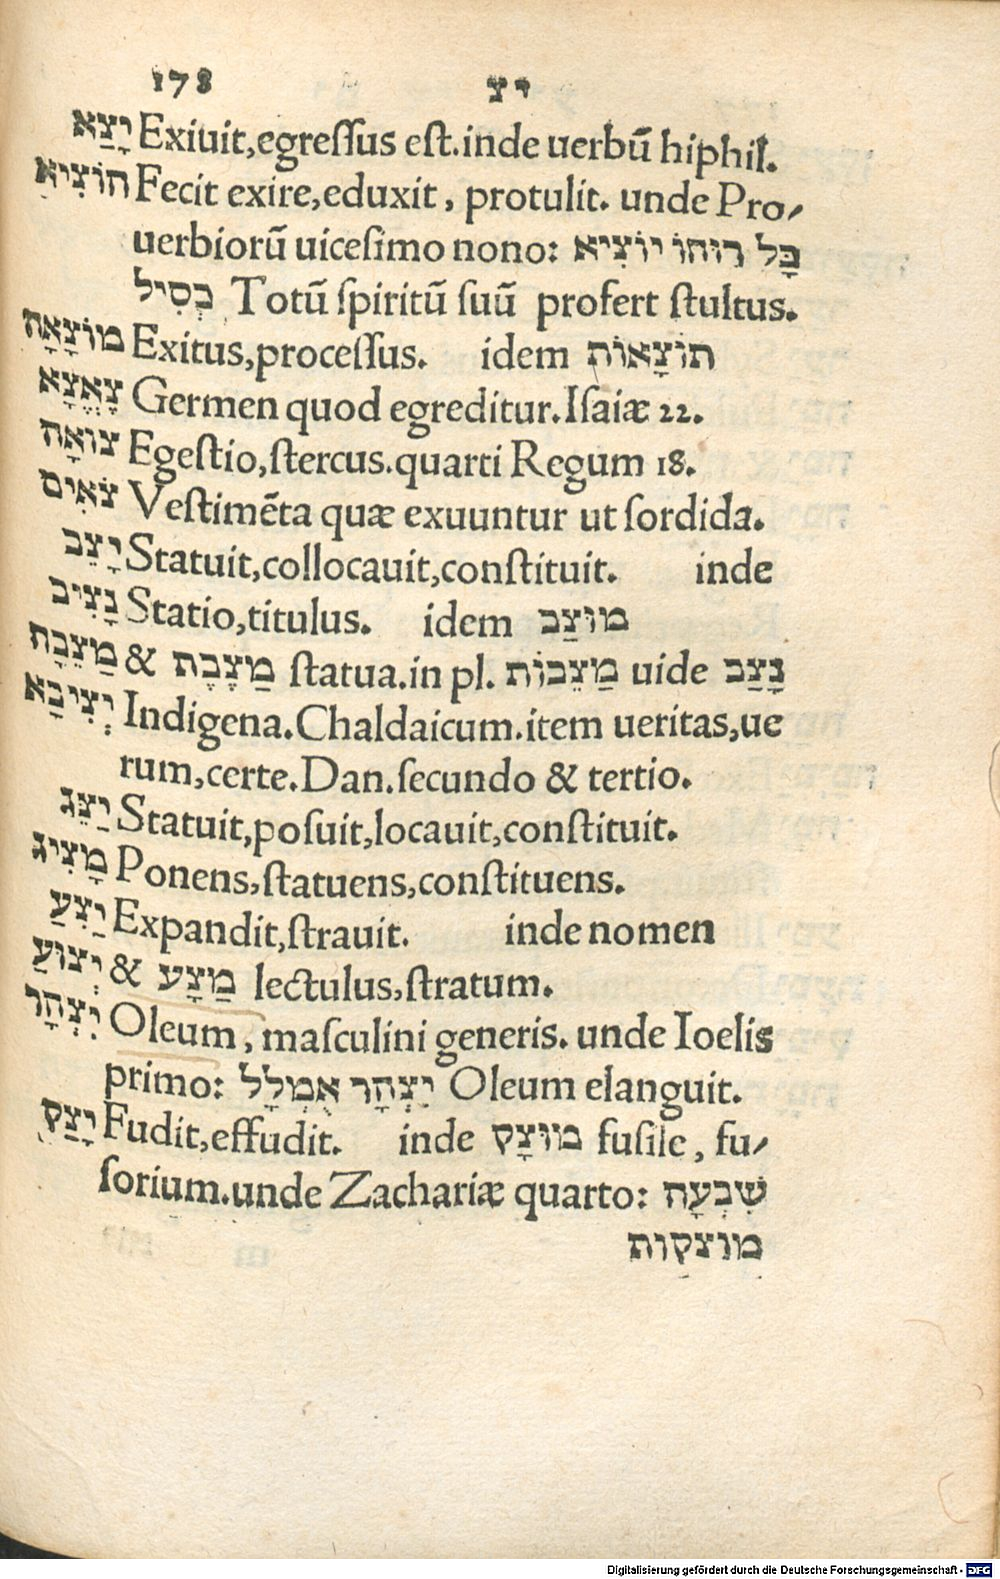 178 יצ
יָצָא Exiuit,egressus est.inde uerbū hiphil.
הוֹצִיא Fecit exire,eduxit, protulit. unde Pro-
uerbiorū uicesimo nono: כָּל רוּחוֹ יוֹצִיא
כְסִיל Totū spiritū suū profert stultus.
מוֹצָאָה Exitus,processus. idem תוֹצָאוֹת
צֶאֱצָא Germen quod egreditur.Isaiæ 22.
צוֹאָה Egestio,stercus.quarti Regum 18.
צֹאִים Vestimēta quæ exuuntur ut sordida.
יָצַב Statuit,collocauit,constituit. inde
נָצִיב Statio,titulus. idem מוּצַב
מַצֵּבָה & מַצֶבֶת statua.in pl. מַצֵבוֹת uide נָצַב
יְצִיבָא Indigena.Chaldaicum.item ueritas,ue
rum,certe.Dan.secundo & tertio.
יַצֵּג Statuit,posuit,locauit,constituit.
מַצִּיג Ponens,statuens,constituens.
יַצִּעַ Expandit,strauit. inde nomen
יְצוּעַ & מַצָּע lectulus,stratum.
יִצְהָר Oleum, masculini generis. unde Ioelis
primo: יִצְהָר אֻמְלָל Oleum elanguit.
יָצַק Fudit,effudit. inde מוּצָק fusile, fu-
sorium.unde Zachariæ quarto: שִׁבְעָה
מוצקות
Digitalisierung gefördert durch die Deutsche Forschungsgemeinschaft - DFG